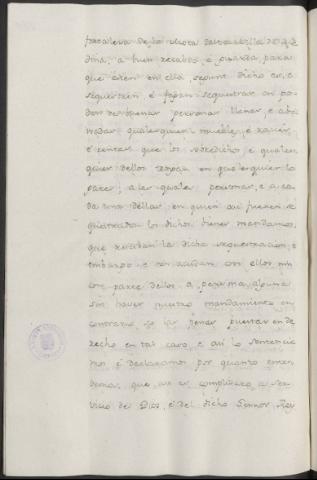 fortaleza de la dicha
dina, a buen recabdo e guarda, para
que esten en ella, segunt dicho es, e
sequestren, e fagan sequestrar en po-
der de personar llanar, e abo-
nadar qualerquier mueble, e raices,
e rentar que los sobredichor, e qualer-
quier dellos tengan en qualerquier lo
parte; a lar qualer personar, e a ca-
da una dellar en quien asi fueren se
questrador los dichor bienes mandamos,
que reciban la dicha sequestracion, e
embargo e non acudan con ellos nin
con parte dellos a persona alguna
sin haver nuestro mandamiento en
contrario, so lar penar puertar en de
recho en tal caso, e asi lo sentencia
mos e declaramos por quanto enten
demos, que asi es complidero a ser-
vicio de Dios, e del dicho Sennor Rey